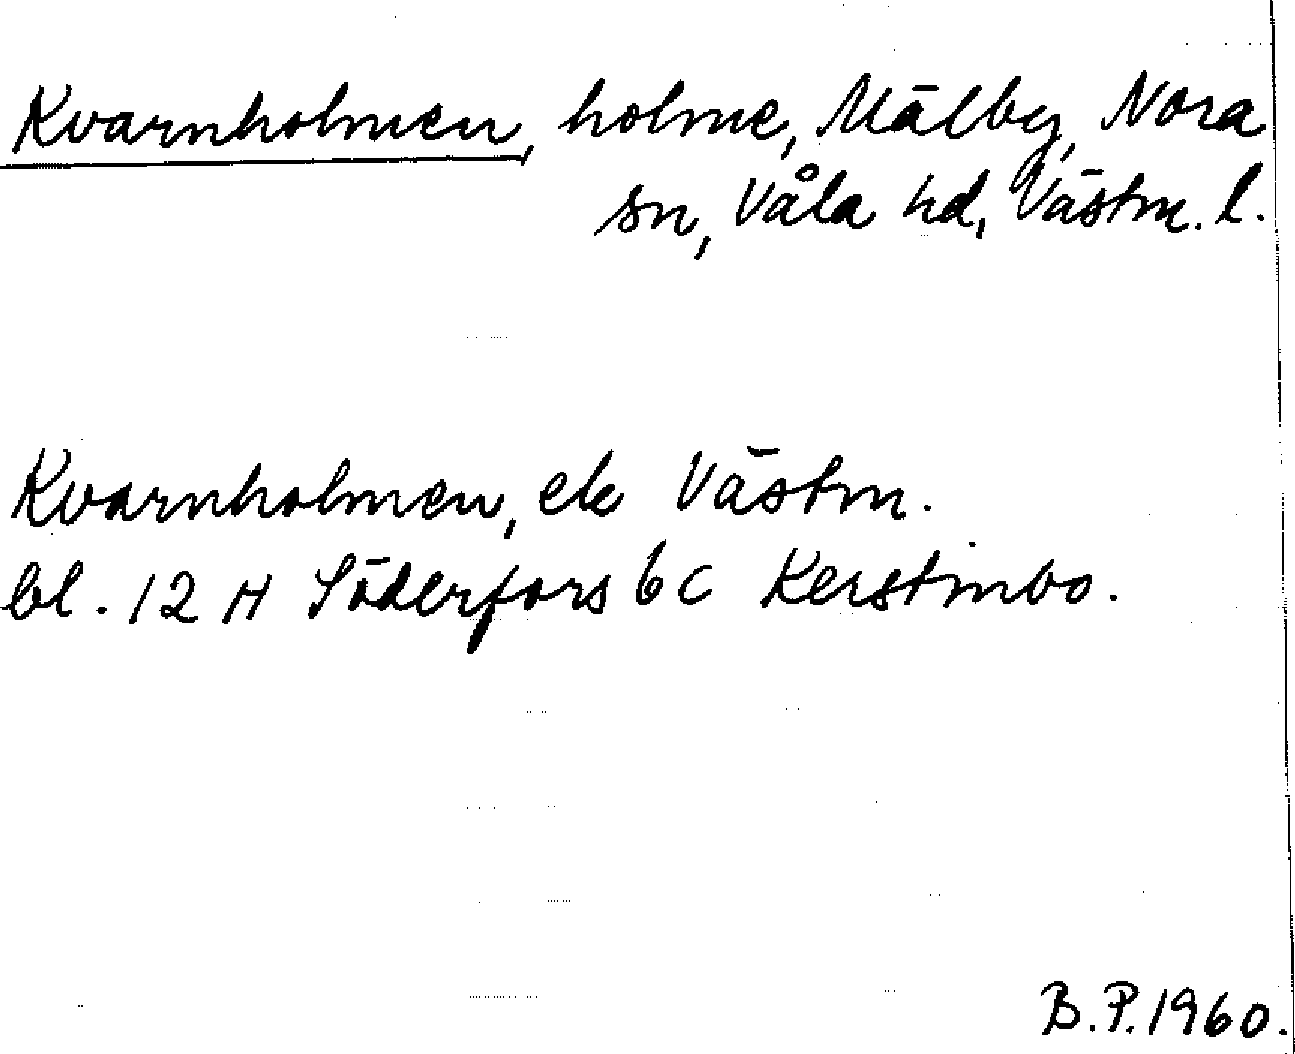 Kvarnholmen, holme, Mälby, Nora
sn, Våla hd, Västm. l.
Kvarnholmen, ek Västm.
bl. 12 H Söderfors 6 C Kerstinbo.
B.P. 1960.